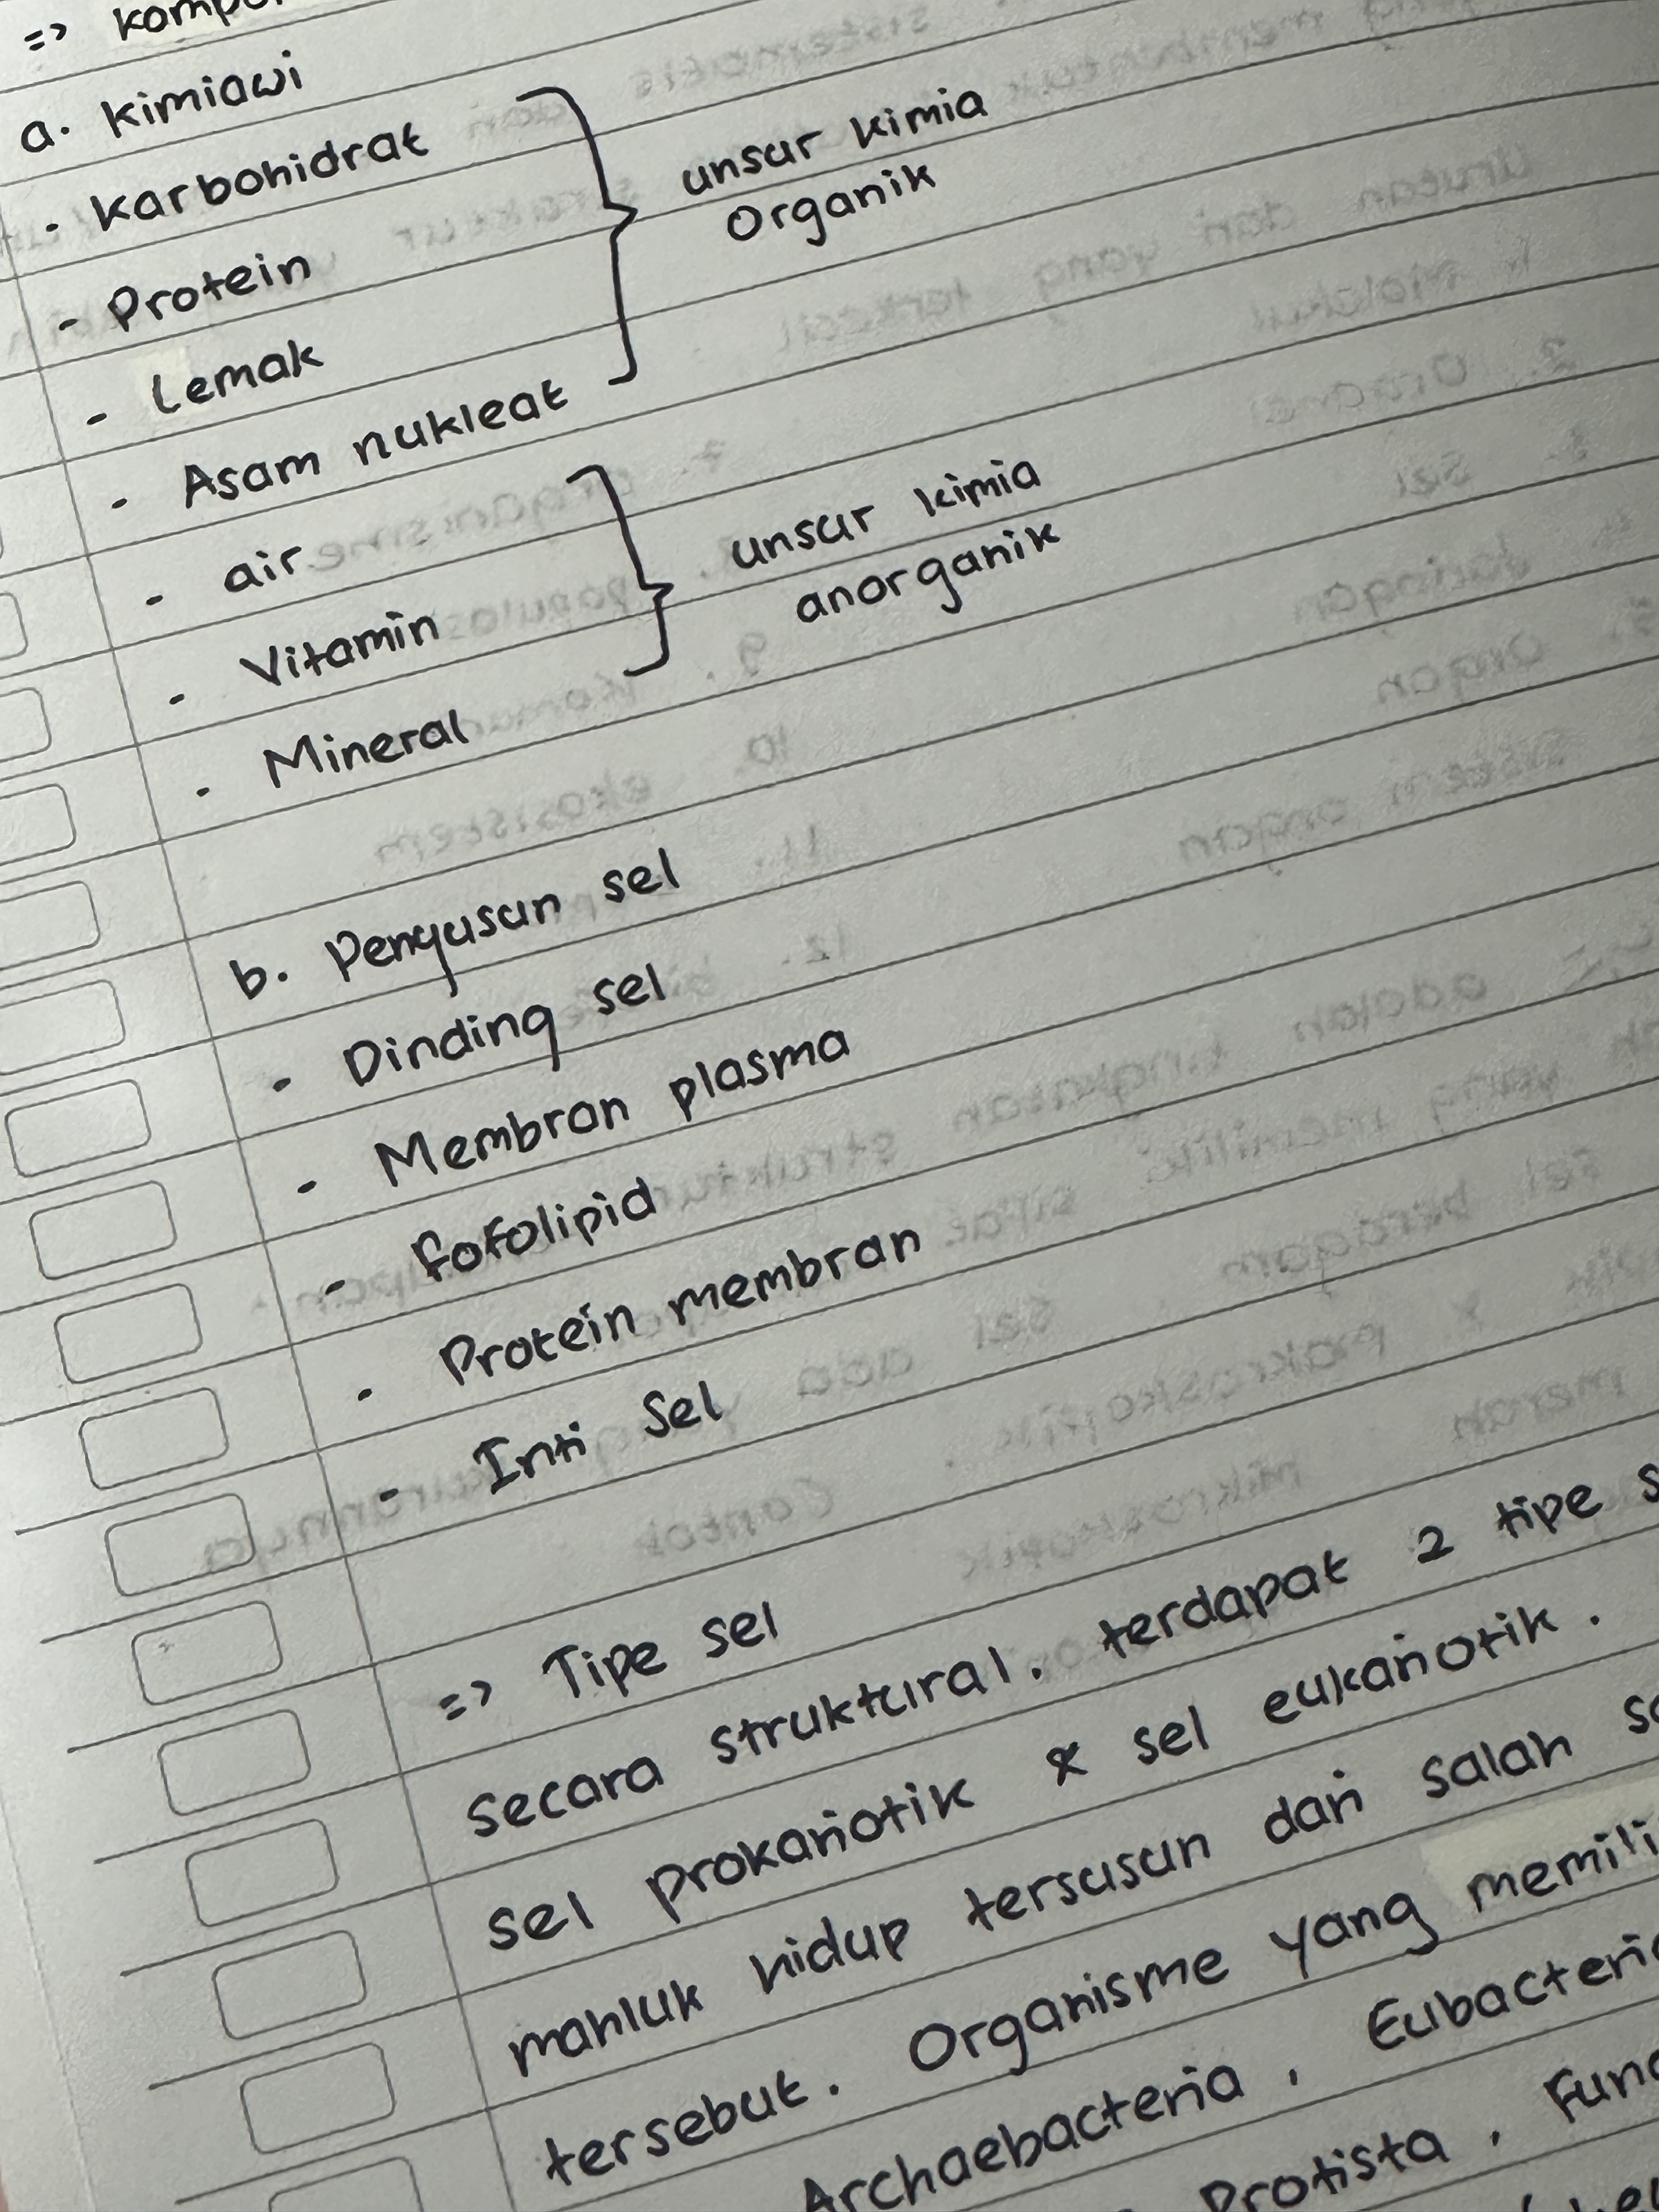 => Kompo
a. Kimiawi
- Karbohidrat
unsur kimia
organik
- Protein
- Lemak
- Asam nukleat
- air
unsur kimia
anorganik
- Vitamin
- Mineral
b. Penyusun sel
- Dinding sel
- Membran plasma
- fofolipid
- Protein membran
- Inti sel
=> Tipe sel
secara struktural. terdapat 2 tipe s
sel prokariotik & sel eukariotik.
mahluk hidup tersusun dari salah sa
tersebut. Organisme yang memili
Archaebacteria, Eubacteri
Protista, Fun